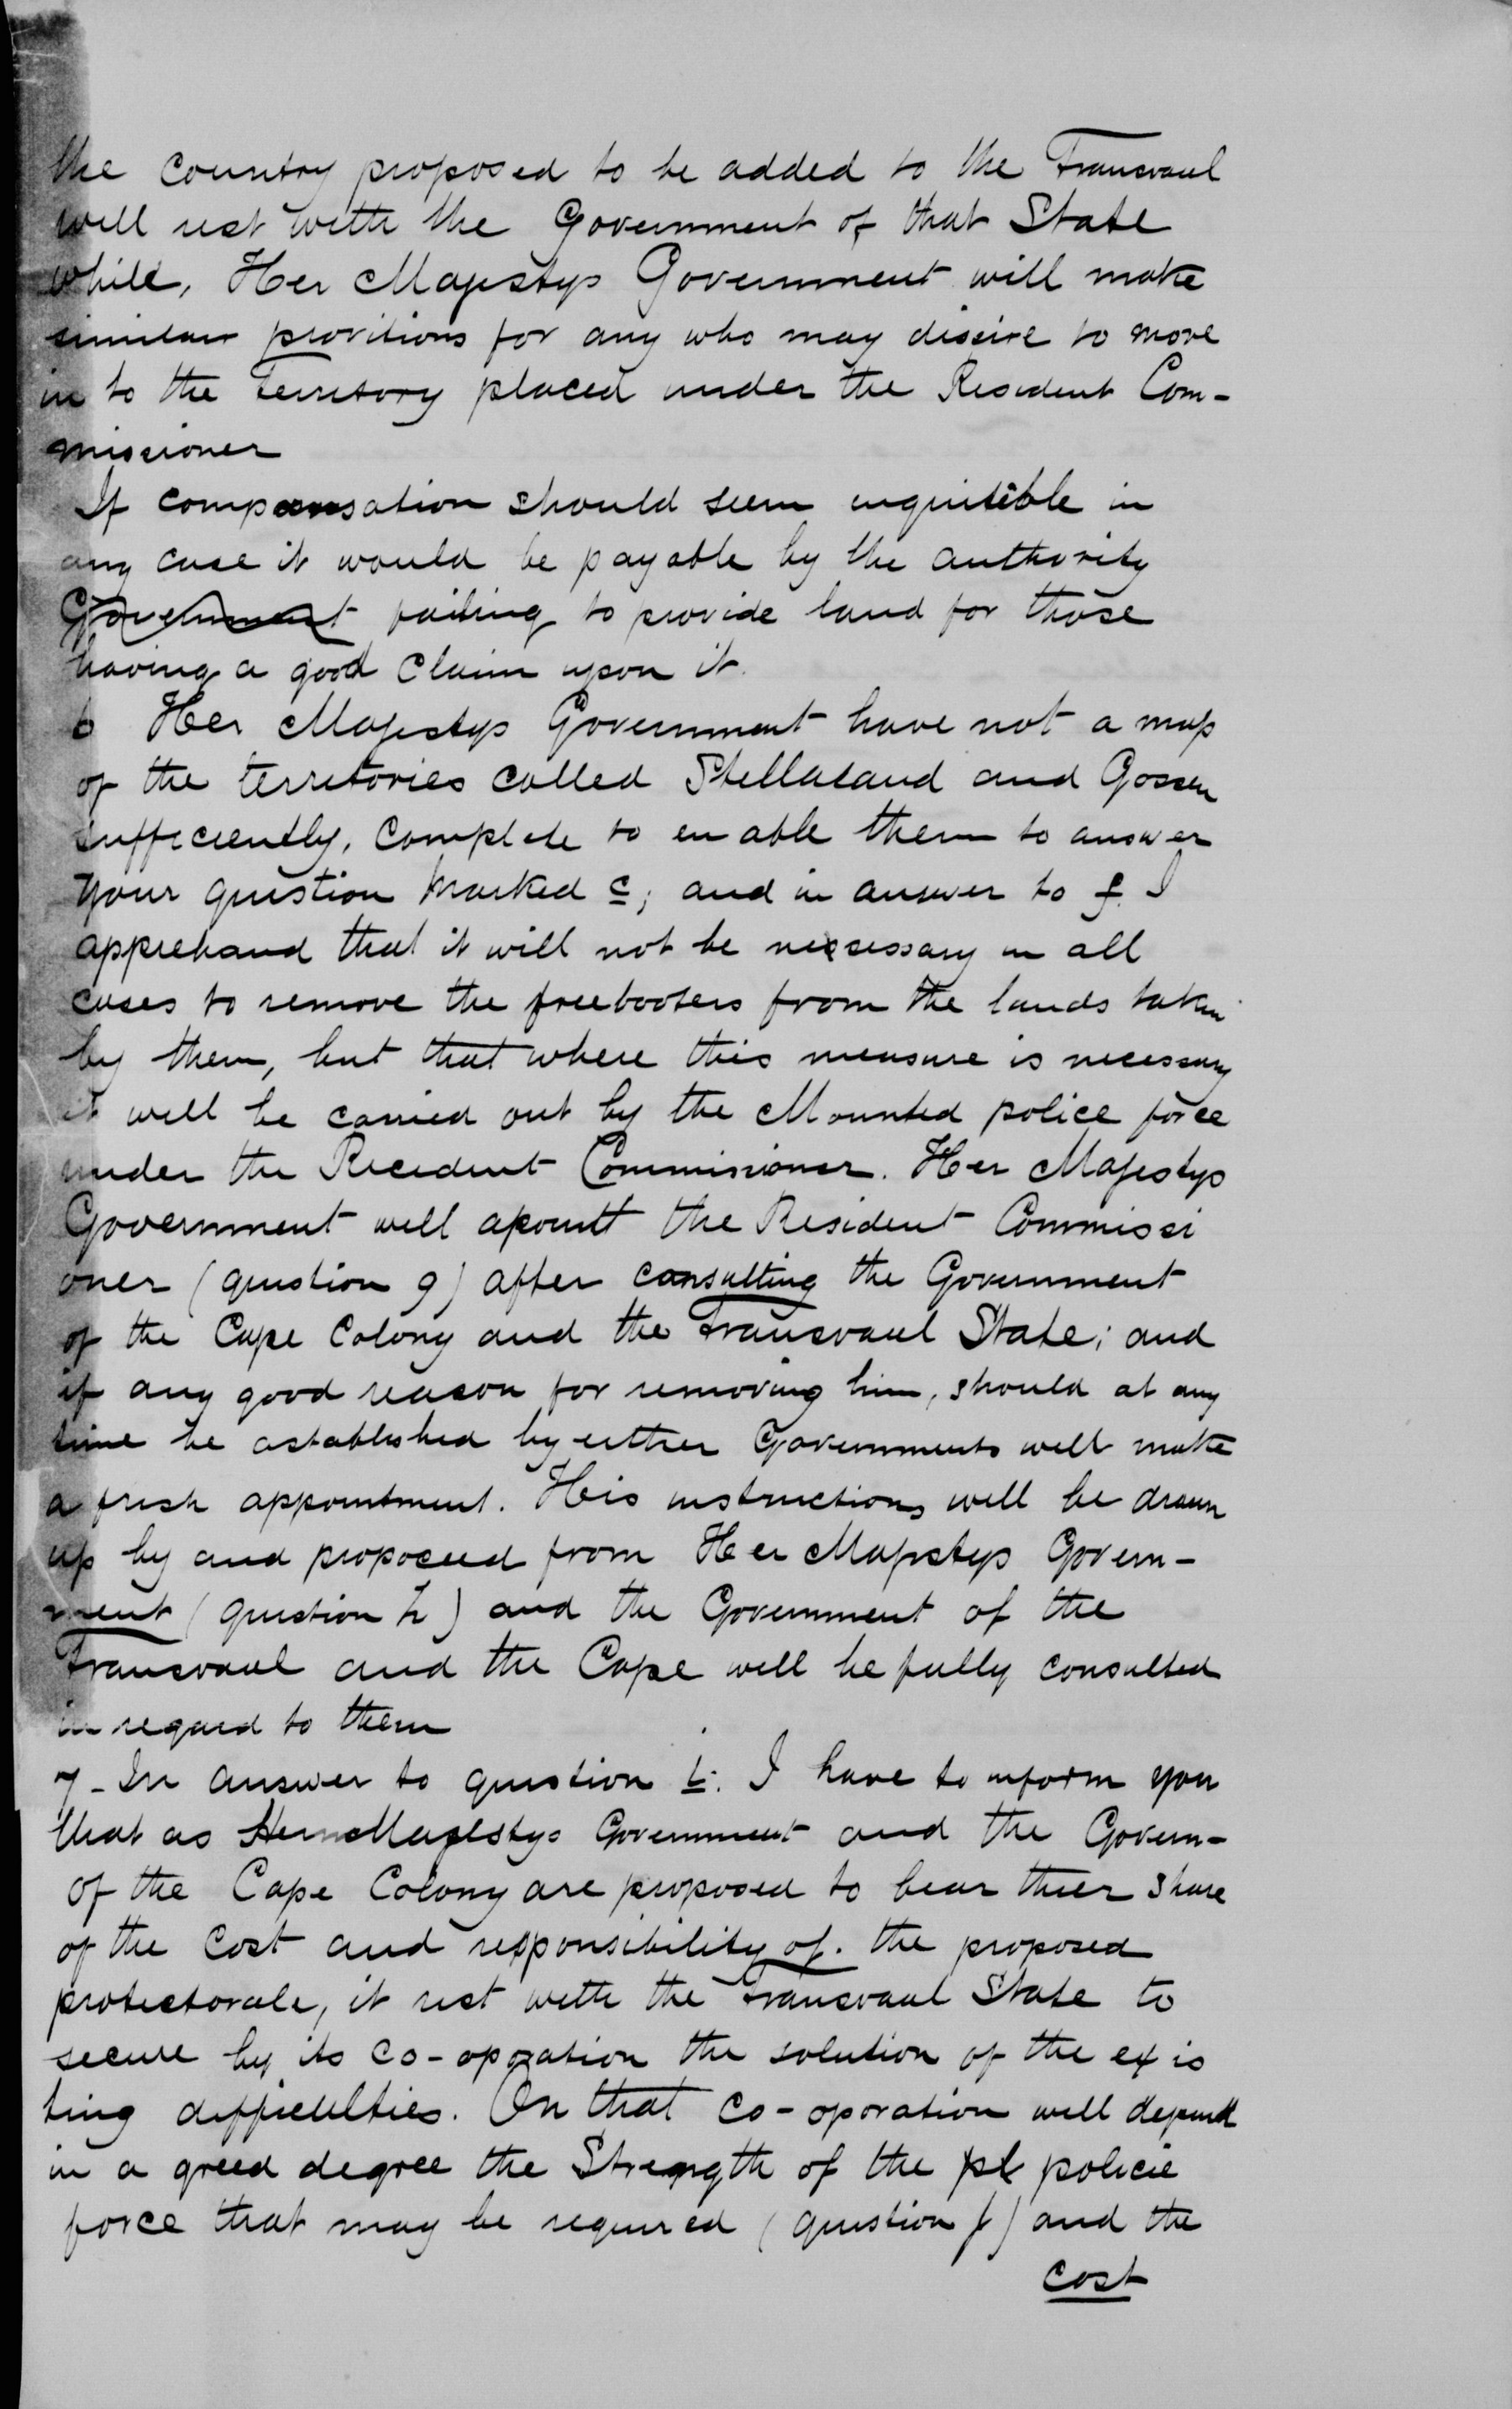 the country proposed to be added to the Transvaal
will rest with the Government of that State
while, Her Majestys Government will make
similar provitions for any who may discire to move
in to the territory placed under the Resident Com-
missioner
If compensation should seem enquitible in
any case it would be payable by the authority
Government failing to provide land for those
having a good claim upon it.
6 Her Majestys Government have not a map
of the territories called Stellaland and Gossen
sufficiently, complete to en able them to answer
your question marked c; and in answer to f. I
apprehand that it will not be necessary in all
cases to remove the freebooters from the lands taken
by them, but that where this measure is necessary
it will be carried out by the Mounted police force
under the Recedent Commissioner. Her Majestys
Government will apount the Resident Commissi
oner (question g) after consulting the Government
of the Cape Colony and the Transvaal State; and
if any good reason for removing him, should at any
time be astablished by either Governments will make
a fresh appointment. His instructions will be drawn
up by and proposeed from Her Majestys Govern-
ment (question h) and the Government of the
Transvaal and the Cape will be fully consulted
in regard to them
7 - In answer to question i. I have to inform you
that as Her Majestys Government and the Govern-
of the Cape Colony are proposed to bear thier share
of the cost and responsibility of. the proposed
protectorale, it rest with the Transvaal State to
secure by its co-oporation the solution of the ex is
ting difficulties. On that co-oporation will depend
in a greed degree the Strength of the pl police
force that may be required (question j) and the
cost